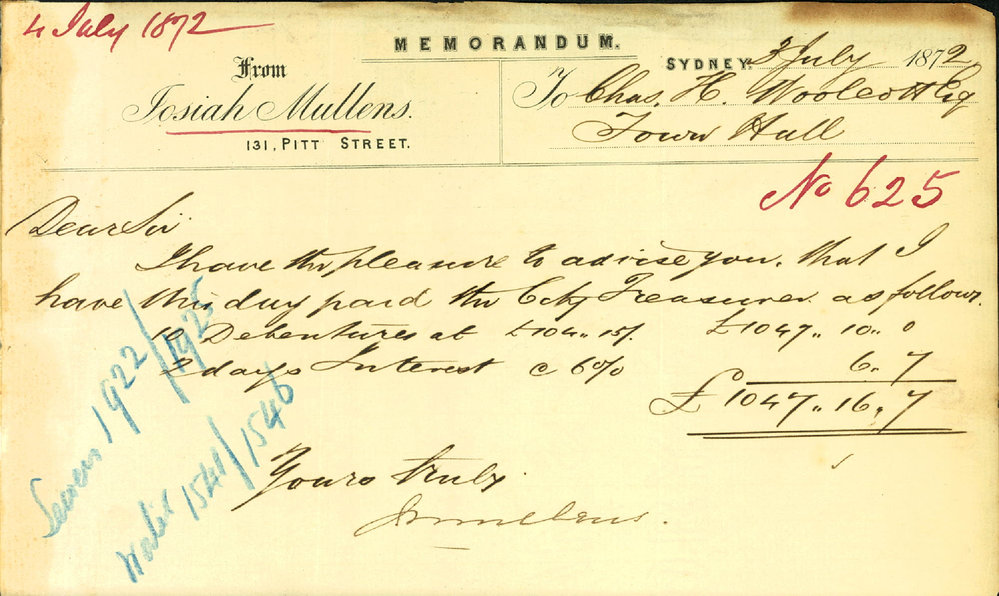 4 July 1872
MEMORANDUM.
From
Josiah Mullens.
131, PITT STREET.
SYDNEY, 3 July 1872
To Chas. H. Woolcott Esq
Town Hall
No 625
Dear Sir
I have the pleasure to advise you, that I
have this day paid the City Treasurer as follows.
10 Debentures at £104..15/. £1047..10..0
2 days Interest @ 6% 6..7
£1047..16..7
Yours truly
Sewers 1922/1925
Water 1541/1546